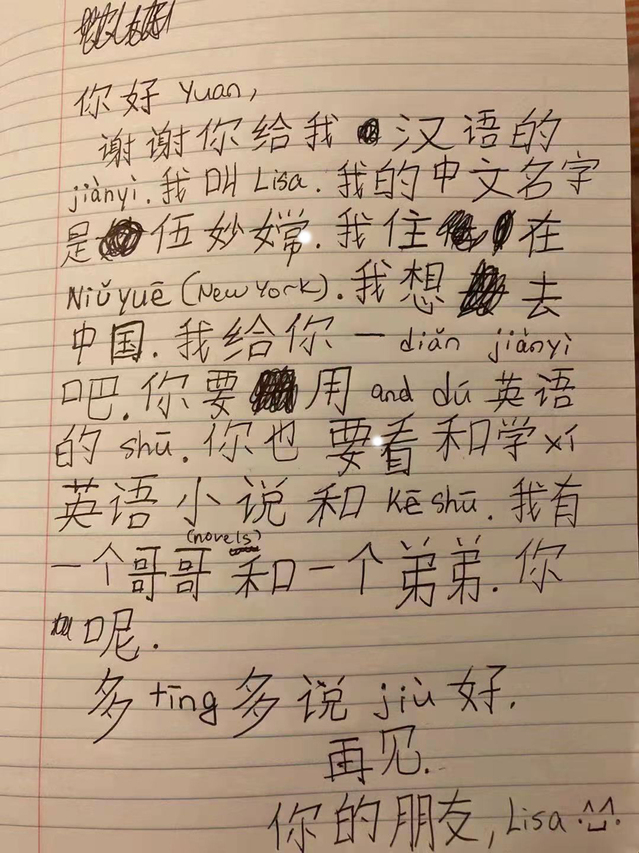 你好 Yuan,
谢谢你给我 汉语的
jiànyì. 我叫 Lisa. 我的中文名字
是 伍妙嫦. 我住 在
Niǔyuē (New York). 我想 去
中国. 我给你一 diǎn jiànyì
吧. 你要 用 and dú 英语
的 shū. 你也 要看和学 xí
英语小说和 Kē shū. 我有
(novels)
一个哥哥 和一个弟弟. 你
呢.
多 tīng 多说 jiù 好.
再见.
你的朋友, Lisa